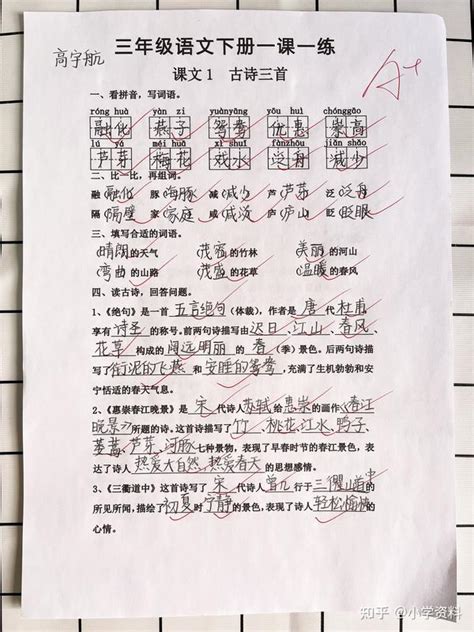 高宇航
三年级语文下册一课一练
A+
课文1 古诗三首
一、看拼音，写词语。
róng huà yàn zi yuānyāng yōu huì chónggāo
融化 燕子 鸳鸯 优惠 崇高
lú yá méi huā xì shuǐ fànzhōu jiǎn shǎo
芦芽 梅花 戏水 泛舟 减少
二、比一比，再组词。
融 融化 豚 海豚 减 减少 芦 芦芽 泛 泛舟
隔 隔壁 家 家庭 咸 咸淡 庐 庐山 眨 眨眼
三、填写合适的词语。
晴朗的天气 茂密的竹林 美丽的河山
弯曲的山路 茂盛的花草 温暖的春风
四、读古诗，回答问题。
1、《绝句》是一首五言绝句（体裁），作者是唐代杜甫，
享有诗圣的称号。前两句诗描写由迟日、江山、春风、
花草构成的阔远明丽的春（季）景色。后两句诗描
写了衔泥的飞燕和安睡的鸳鸯，充满了生机勃勃和安
宁恬适的春天气息。
2、《惠崇春江晚景》是宋代诗人苏轼给惠崇的画作《春江
晚景》所题的诗。这首诗描写了竹、桃花、江水、鸭子、
蒌蒿、芦芽、河豚七种景物，表现了早春时节的春江景色，表
达了诗人热爱大自然，热爱春天的思想感情。
3、《三衢道中》这首诗写了宋代诗人曾几行于三衢山道中
的所见所闻，描绘了初夏时宁静的景色，表现了诗人轻松愉快的
心情。
知乎 @小学资料